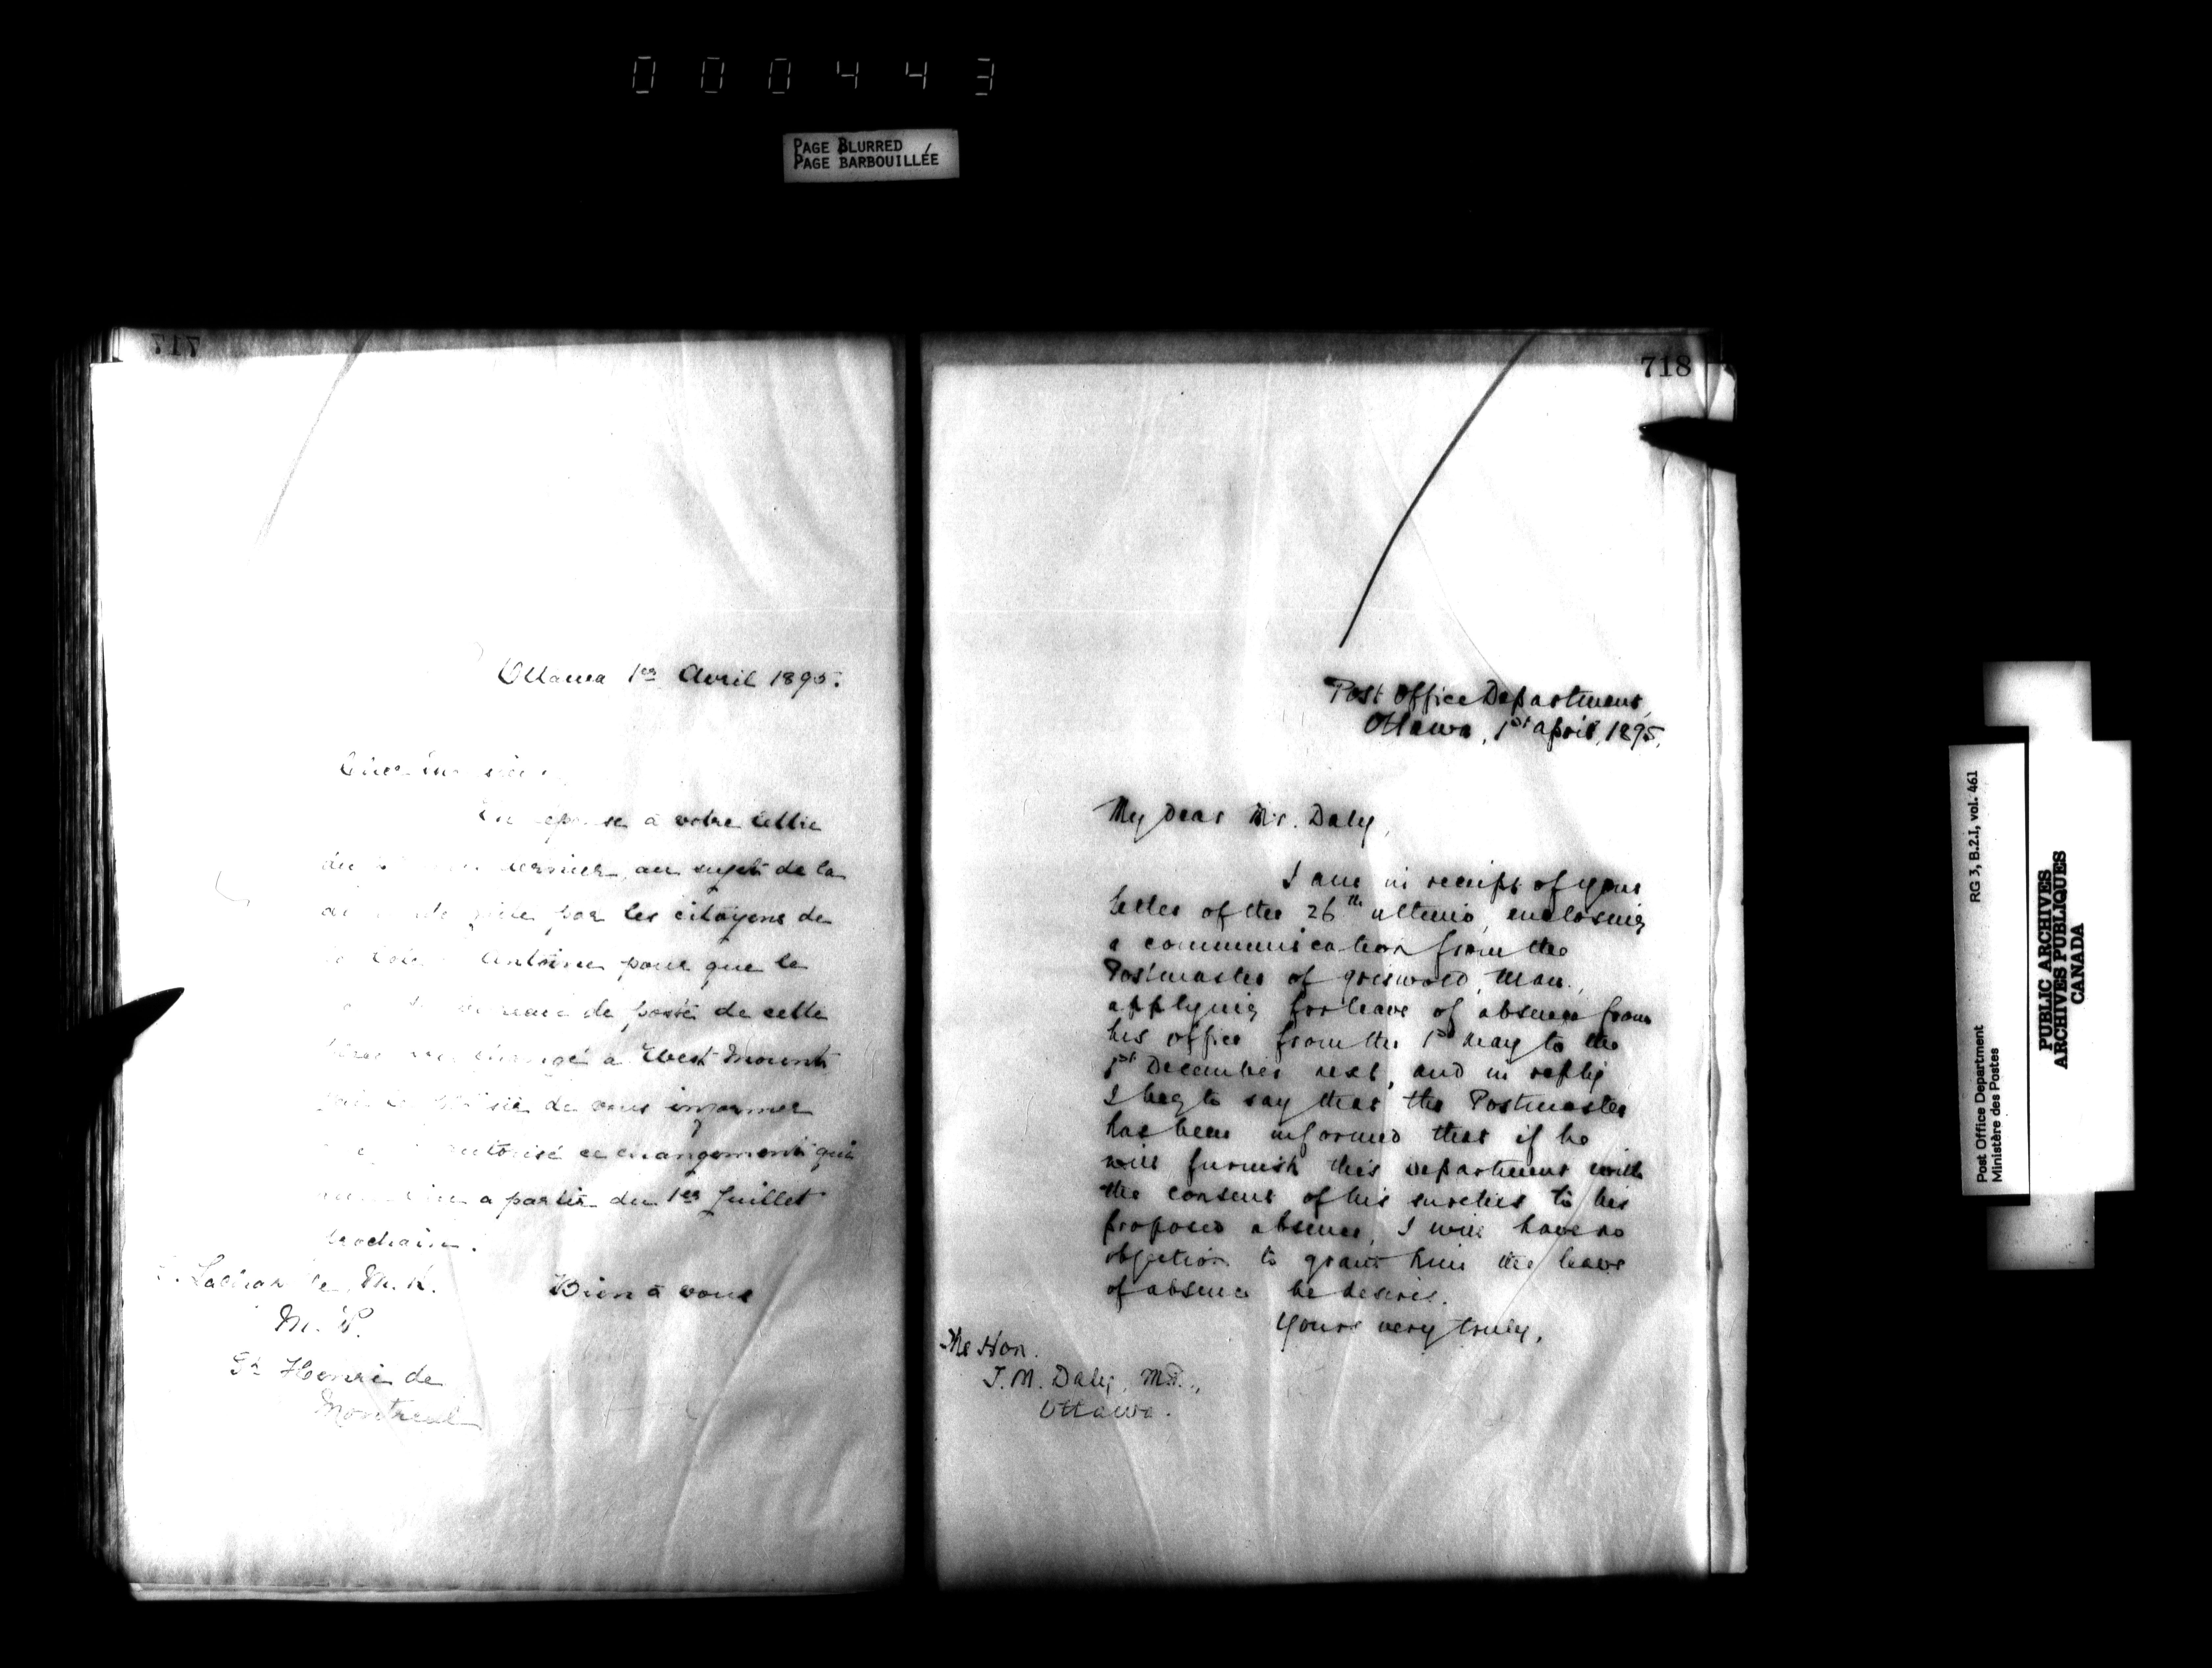 000443
PAGE BLURRED
PAGE BARBOUILLÉE
717
Ottawa 1er Avril 1895.
à votre lettre
du dernier, au sujet de la
par les citoyens de
Antoine pour que le
de poste de cette
à West Mount
de vous informer
autorisé ce changement qui
a partir du 1er Juillet
prochain.
Bien à vous
M. P.
St Henri de
Montreal
718
Post Office Department,
Ottawa, 1st April, 1895.
My Dear Mr. Daly,
I am in receipt of your
letter of the 26th ultimo, enclosing
a communication from the
Postmaster of Griswold, Man.,
applying for leave of absence from
his office from the 1st May to the
1st December next, and in reply
I beg to say that the Postmaster
has been informed that if he
will furnish this Department with
the consent of his sureties to his
proposed absence, I will have no
objection to grant him the leave
of absence he desires.
Yours very truly,
The Hon.
T. M. Daly, M.P.,
Ottawa.
Post Office Department
Ministère des Postes
RG 3, B.2.I, vol. 461
PUBLIC ARCHIVES
ARCHIVES PUBLIQUES
CANADA